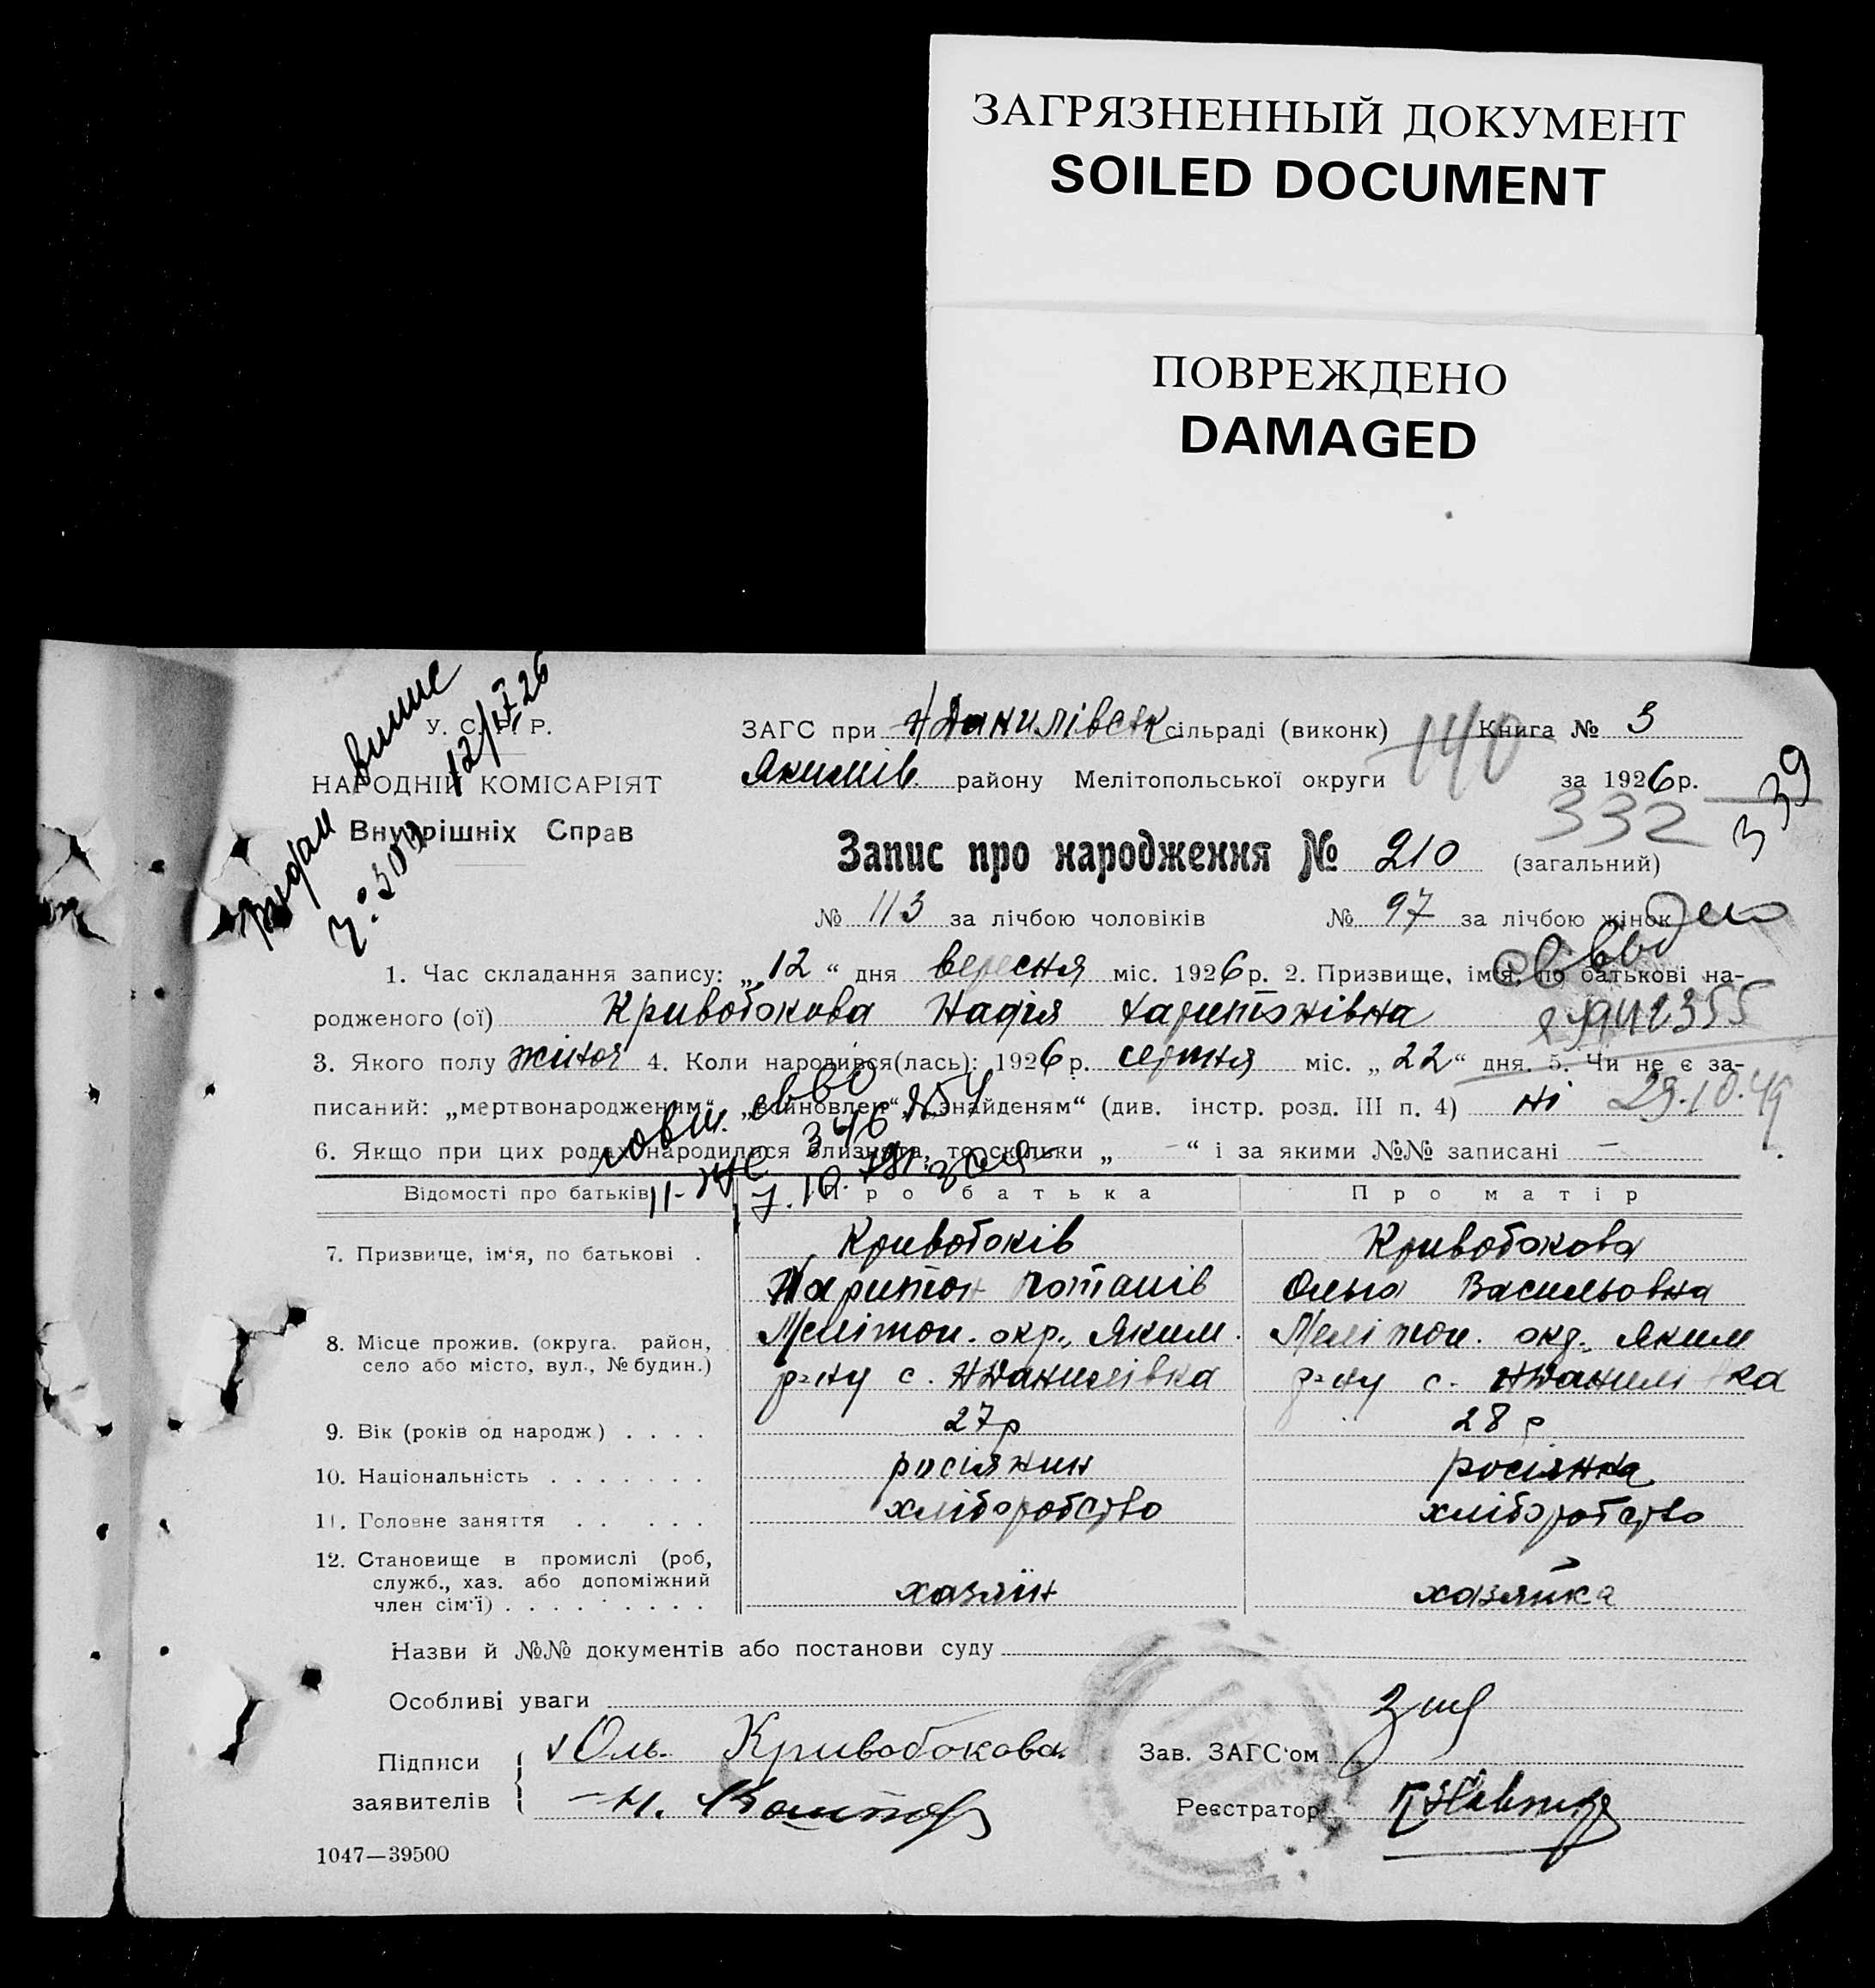 ЗАГРЯЗНЕННЫЙ ДОКУМЕНТ
SOILED DOCUMENT
ПОВРЕЖДЕНО
DAMAGED
У. С. Р. Р.
НАРОДНІЙ КОМІСАРІЯТ
Внутрішніх Справ
видан выпис
12/IX 26
ЗАГС при Н/Данилівськ сільраді (виконк) Книга № 3
140
Якимів. району Мелітопольської округи за 1926 р.
332
339
Запис про народження № 210 (загальний)
№ 113 за лічбою чоловіків № 97 за лічбою жінок
1. Час складання запису: „12“ дня вересня міс. 1926 р. 2. Призвище, ім‘я, по батькові на-
родженого (ої) Кривобокова Надія Харитонівна
3. Якого полу жіноч 4. Коли народився(лась): 1926 р. серпня міс. „22“ дня. 5. Чи не є за-
писаний: „мертвонародженим“, „знайденям“ (див. інстр. розд. III п. 4) ні
29.10.49
6. Якщо при цих родах народилися близнята, то скільки „ - “ і за якими №№ записані —
Відомості про батьків Про батька Про матір
7. Призвище, ім‘я, по батькові . Кривобоків Кривобокова
Харитон Потапів Ольга Васильовна
8. Місце прожив. (округа. район, Мелітоп. окр., Яким. Мелітоп. окр., Яким
село або місто, вул., № будин.) р-ну с. НДанилівка р-ну с. НДанилівка
9. Вік (років од народж) . . . . 27 р 28 р
10. Національність . . . . . . . росіянин росіянка
11. Головне заняття . . . . . хліборобство хліборобство
12. Становище в промислі (роб,
служб., хаз. або допоміжний
член сім‘ї) . . . . . . . . . хазяїн хазяйка
Назви й №№ документів або постанови суду
Особливі уваги
Підписи
заявителів
Оль. Кривобокова
Зав. ЗАГС‘ом
Реєстратор
1047—39500